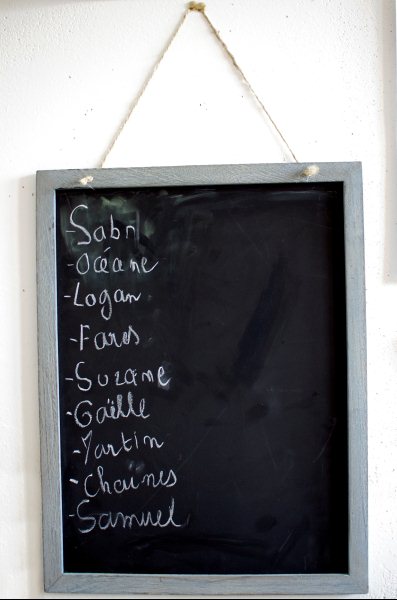 - Sabri
- Océane
- Logan
- Fares
- Suzame
- Gaëlle
- Martin
- Samuel